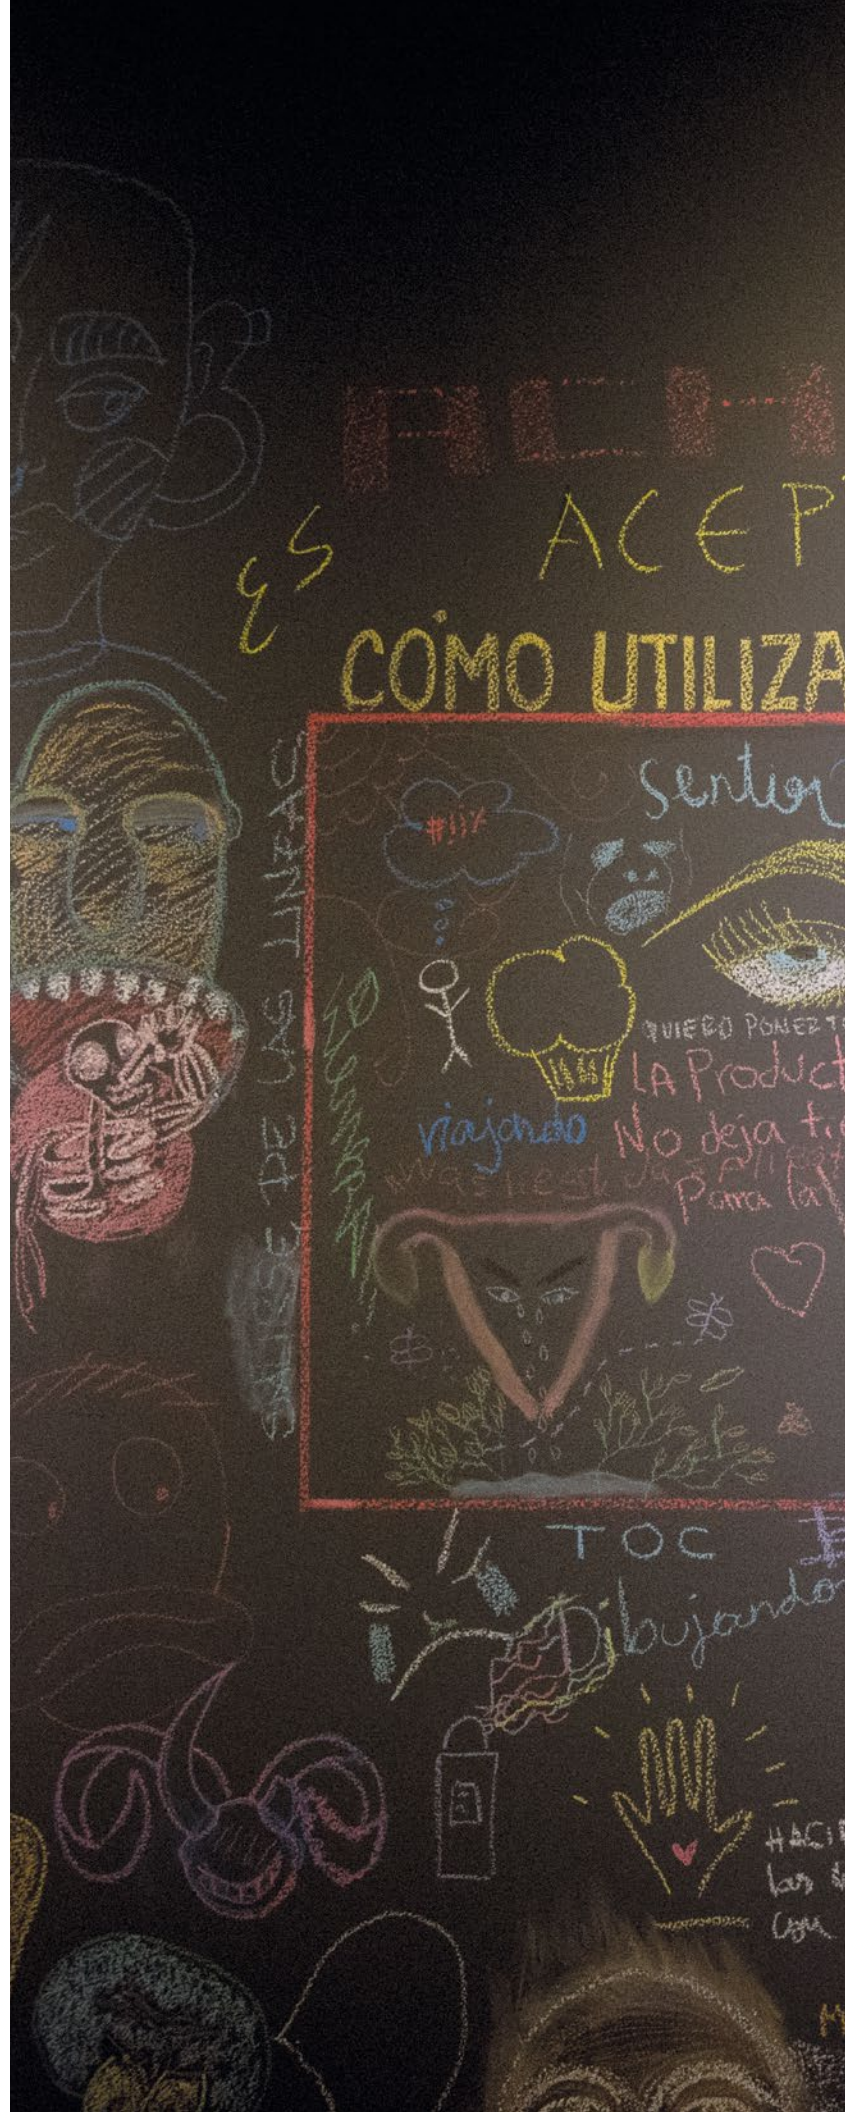 ACH
ES ACEP
CÓMO UTILIZA
SALIRSE DE LAS LÍNEAS
sentir
#!!%
QUIERO PONER
LA Product
viajando
No deja ti
Para la
TOC
Dibujando
HACI
las
con